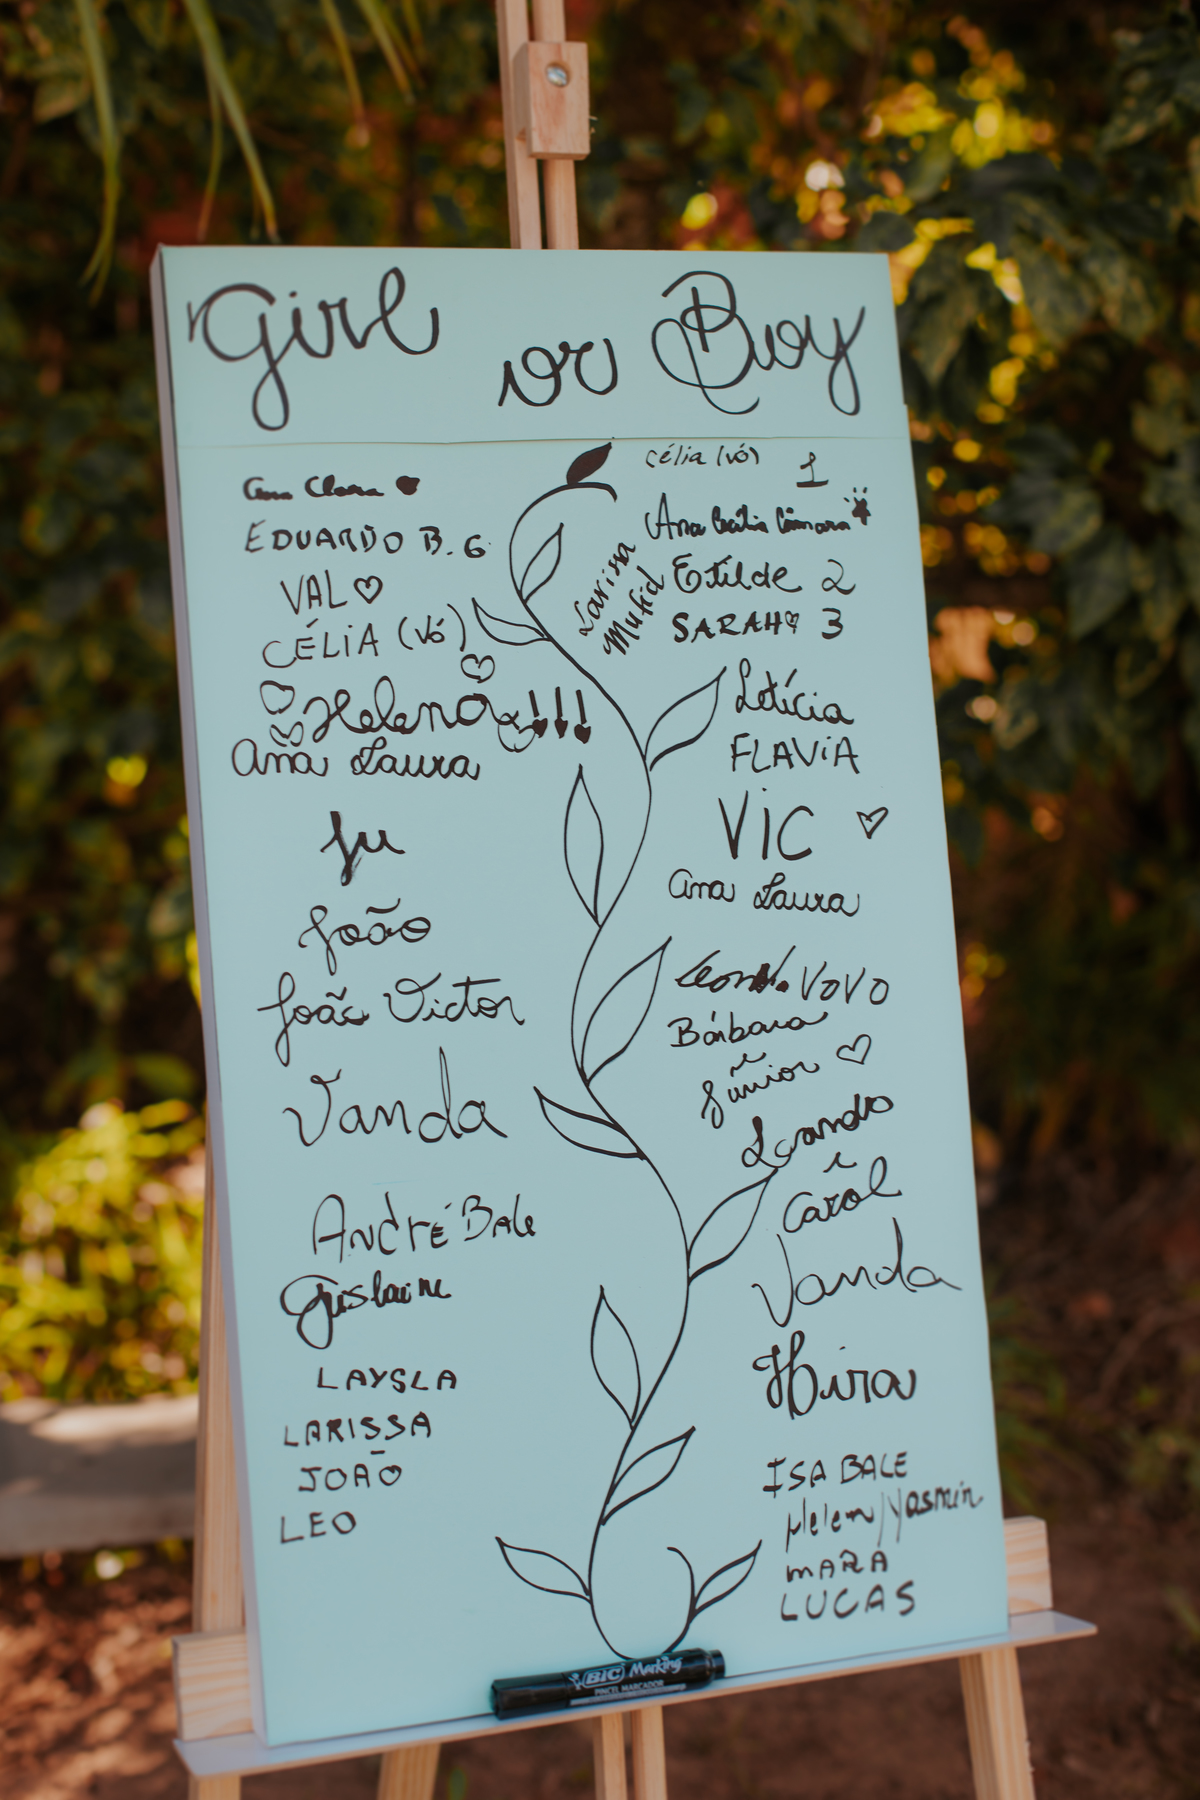 Girl or Boy
Ana Clara
EDUARDO B. G
VAL
CÉLIA (VÓ)
Helena !!!
Ana Laura
Ju
João
João Victor
Vanda
André Bale
Gislaine
LAYSLA
LARISSA
JOÃO
LEO
Célia (vó) 1
Ana Cecília Câmara
Larissa
Mufid
Etilde 2
SARAH 3
Letícia
FLAVIA
VIC
Ana Laura
VOVO
Bárbara
e
Júnior
Leandro
e
Carol
Vanda
Hira
ISA BALE
Helem/Yasmin
MARA
LUCAS
BIC Marking
PINCEL MARCADOR